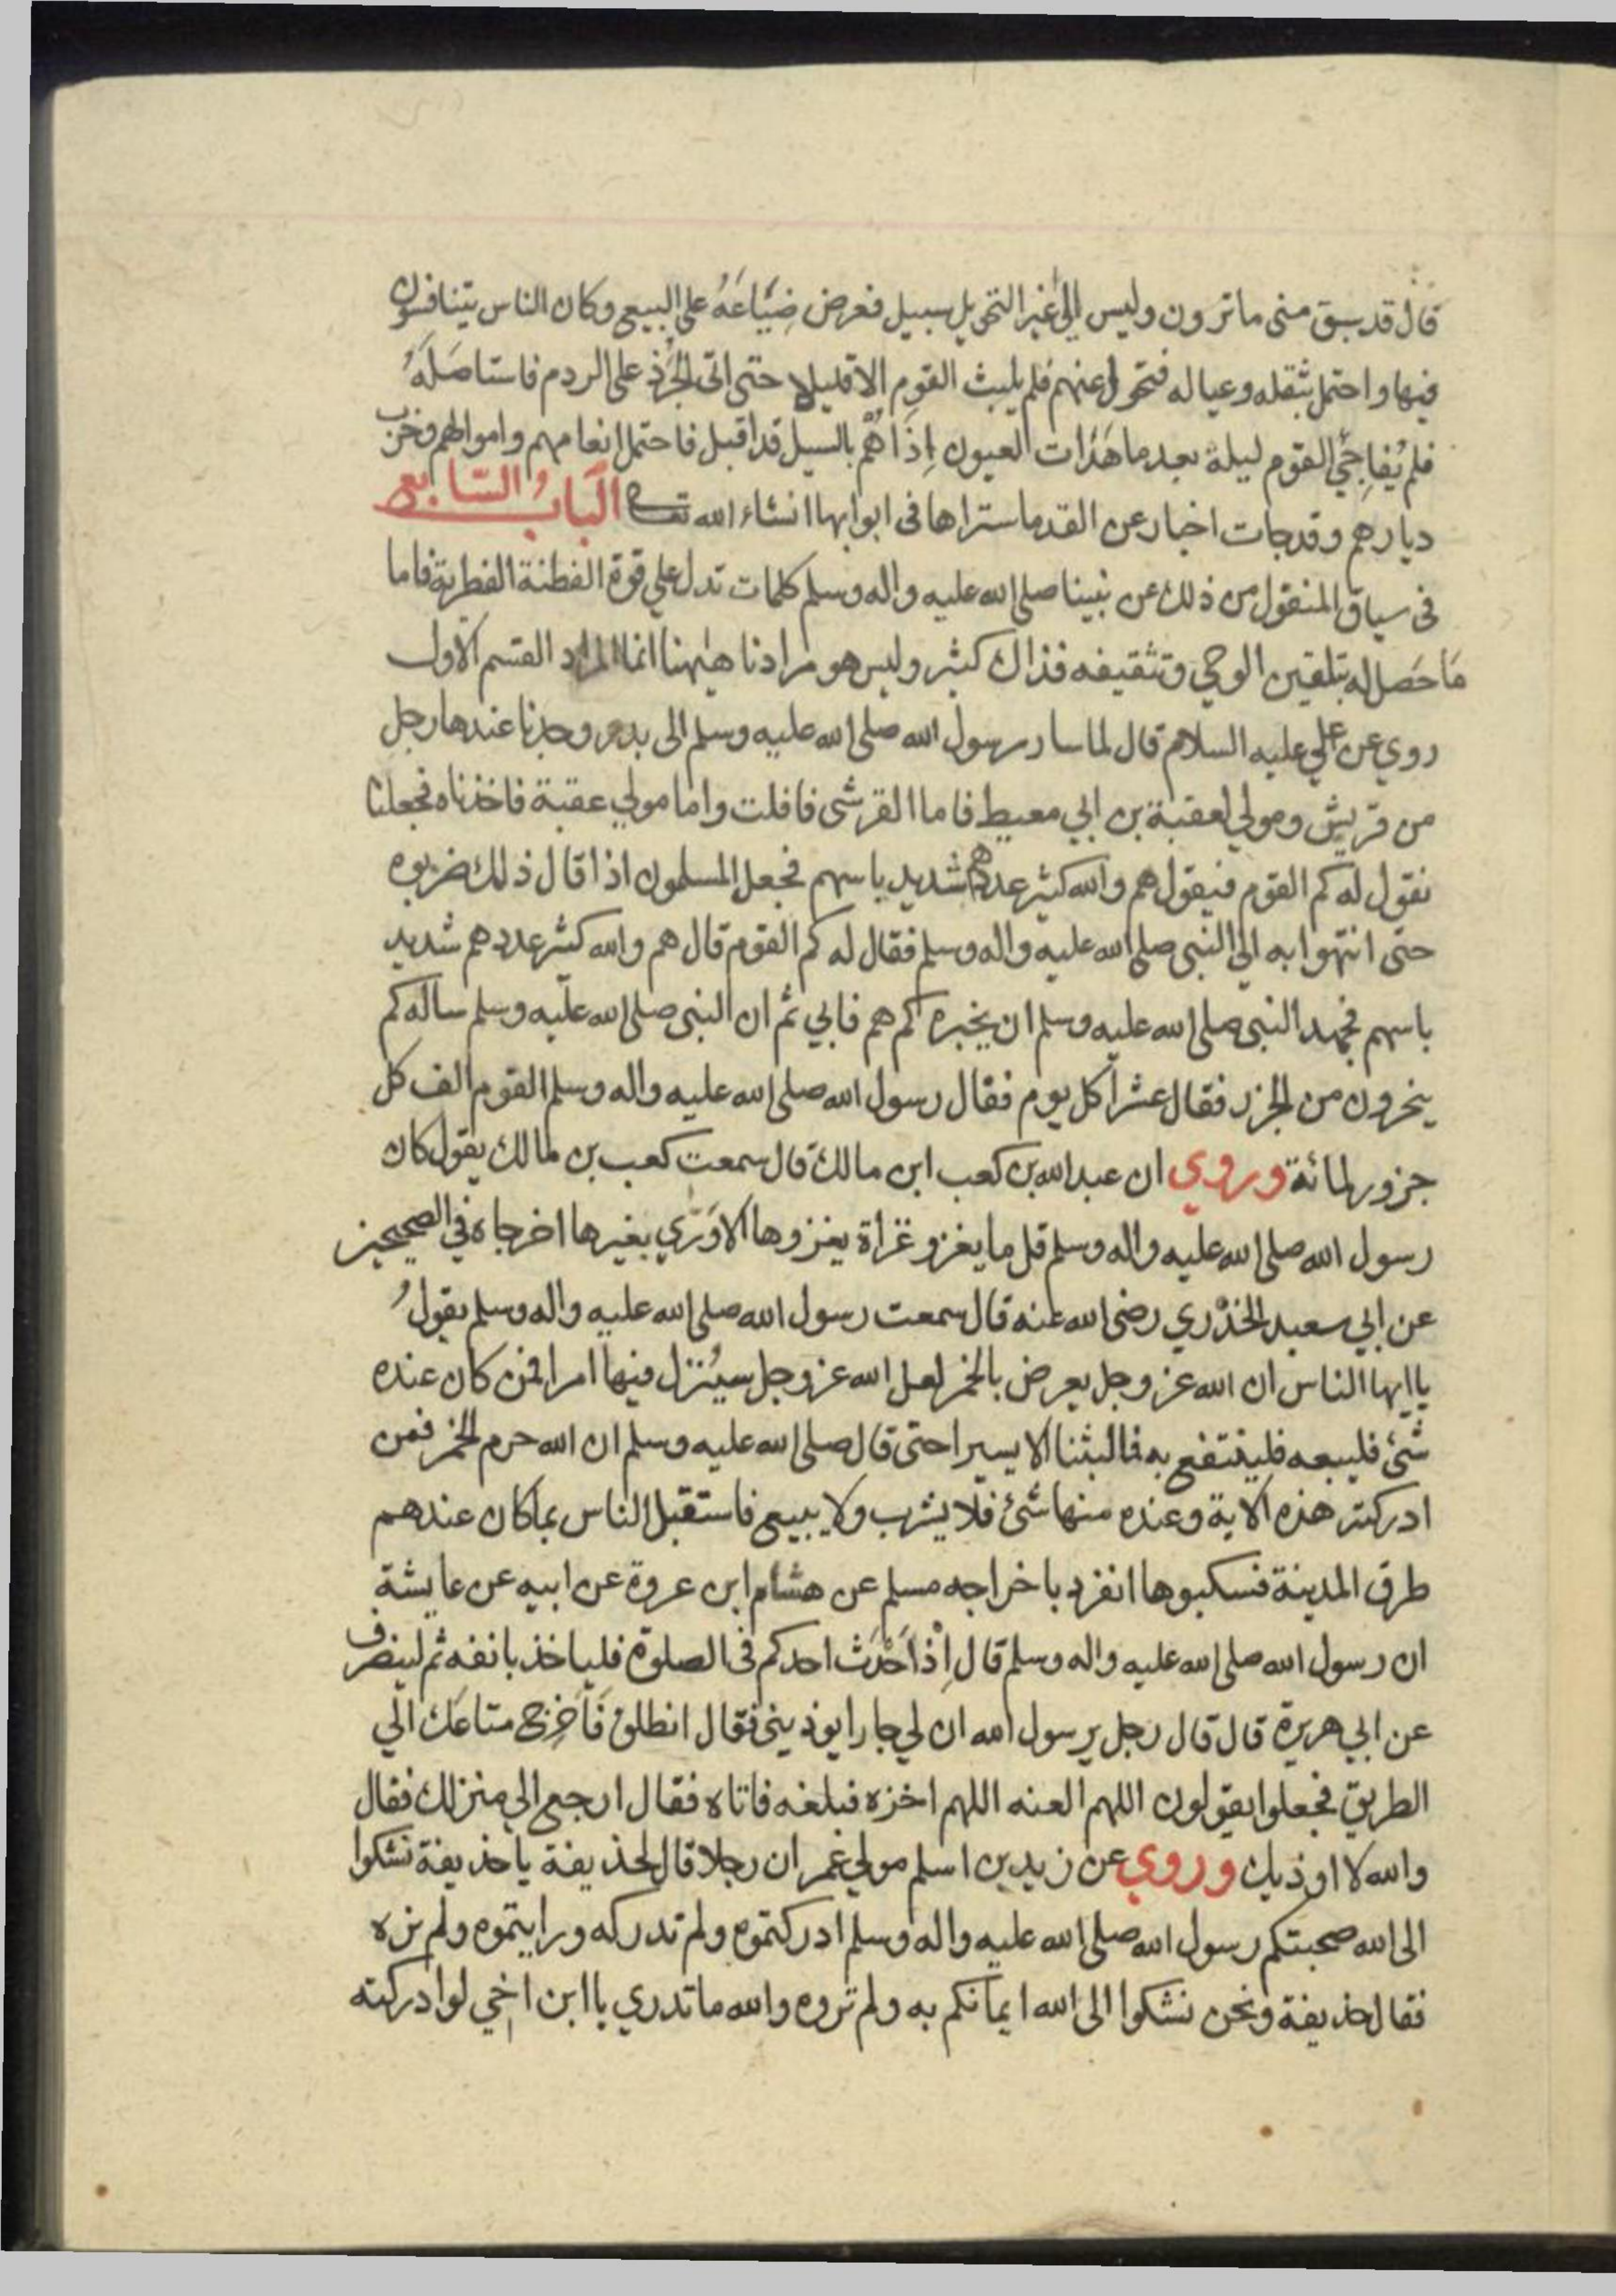 قال قد سبق مني ما ترون وليس الى غير التحويل سبيل فعرض ضِيَاعَهُ على البيع وكان الناس يتنافسون
فيها واحتمل بثقله وعياله فتحول عنهم فلم يلبث القوم الا قليلا حتى اتى الجُرَذ على الردم فاستاصَلَهُ
فلم يُفاجِئ القوم ليلة بعد ما هَدَات العيون اِذَا هُم بالسيل قد اقبل فاحتمل انعامهم واموالهم وخرب
ديارهم وقد جات اخبار عن القدما ستراها في ابوابها انشاء الله تعالى اَلبَابُ السّابع
في سياق المنقول من ذلك عن نبينا صلى الله عليه واله وسلم كلمات تدل على قوة الفطنة الفطرية فاما
مَا حَصل له بتلقين الوحي وتثقيفه فذاك كثير وليس هو مرادنا هيٰهنا انما المراد القسم الاول
روي عن علي عليه السلام قال لما سار رسول الله صلى الله عليه وسلم الى بدر وجدنا عندها رجل
من قريش ومولي لعقبة بن ابي معيط فاما القرشي فافلت واما مولي عقبة فاخذناه فجعلنا
نقول له كم القوم فيقول هم والله كثير عددهم شديد باسهم فجعل المسلمون اذا قال ذلك ضربوه
حتى انتهوا به الى النبي صلى الله عليه واله وسلم فقال له كم القوم قال هم والله كثير عددهم شديد
باسهم فجهد النبي صلى الله عليه وسلم ان يخبره كم هم فابي ثم ان النبي صلى الله عليه وسلم ساله كم
ينحرون من الجزر فقال عشرا كل يوم فقال رسول الله صلى الله عليه واله وسلم القوم الف كل
جزور لمائة وروي ان عبد الله بن كعب ابن مالك قال سمعت كعب بن مالك يقول كان
رسول الله صلى الله عليه واله وسلم قل ما يغزو غزاة يغزوها الا وَرّي بغيرها اخرجاه في الصحيحين
عن ابي سعيد الخدْري رضى الله عنه قال سمعت رسول الله صلى الله عليه واله وسلم يقولُ
يا ايها الناس ان الله عز وجل يعرض بالخمر لعل الله عز وجل سيُنزل فيها امرا فمن كان عنده
شئ فليبعه فلينتفع به فما لبثنا الا يسيرا حتى قال صلى الله عليه وسلم ان الله حرم الخمر فمن
ادركته هذه الاية وعنده منها شئ فلا يشرب ولا يبيع فاستقبل الناس بما كان عندهم
طرق المدينة فسكبوها انفرد باخراجه مسلم عن هشام ابن عروة عن ابيه عن عايشة
ان رسول الله صلى الله عليه واله وسلم قال اِذا اَحْدَث احدكم في الصلوة فلياخذ بانفه ثم لينصرف
عن ابي هريرة قال قال رجل يرسول الله ان لي جارا يوذيني فقال انطلق فَاَخرِج متاعَك الي
الطريق فجعلوا يقولون اللهم العنه اللهم اخزه فبلغه فاتاه فقال ارجع الى منزلك فقال
والله لا اوذيك وروي عن زيد بن اسلم مولي عمر ان رجلا قال لحذيفة يا حذيفة نشكوا
الى الله صحبتكم رسول الله صلى الله عليه واله وسلم ادركتموه ولم تدركه ورايتموه ولم نره
فقال حذيفة ونحن نشكوا الى الله ايمانكم به ولم تروه والله ما تدري يا ابن اخي لو ادركته